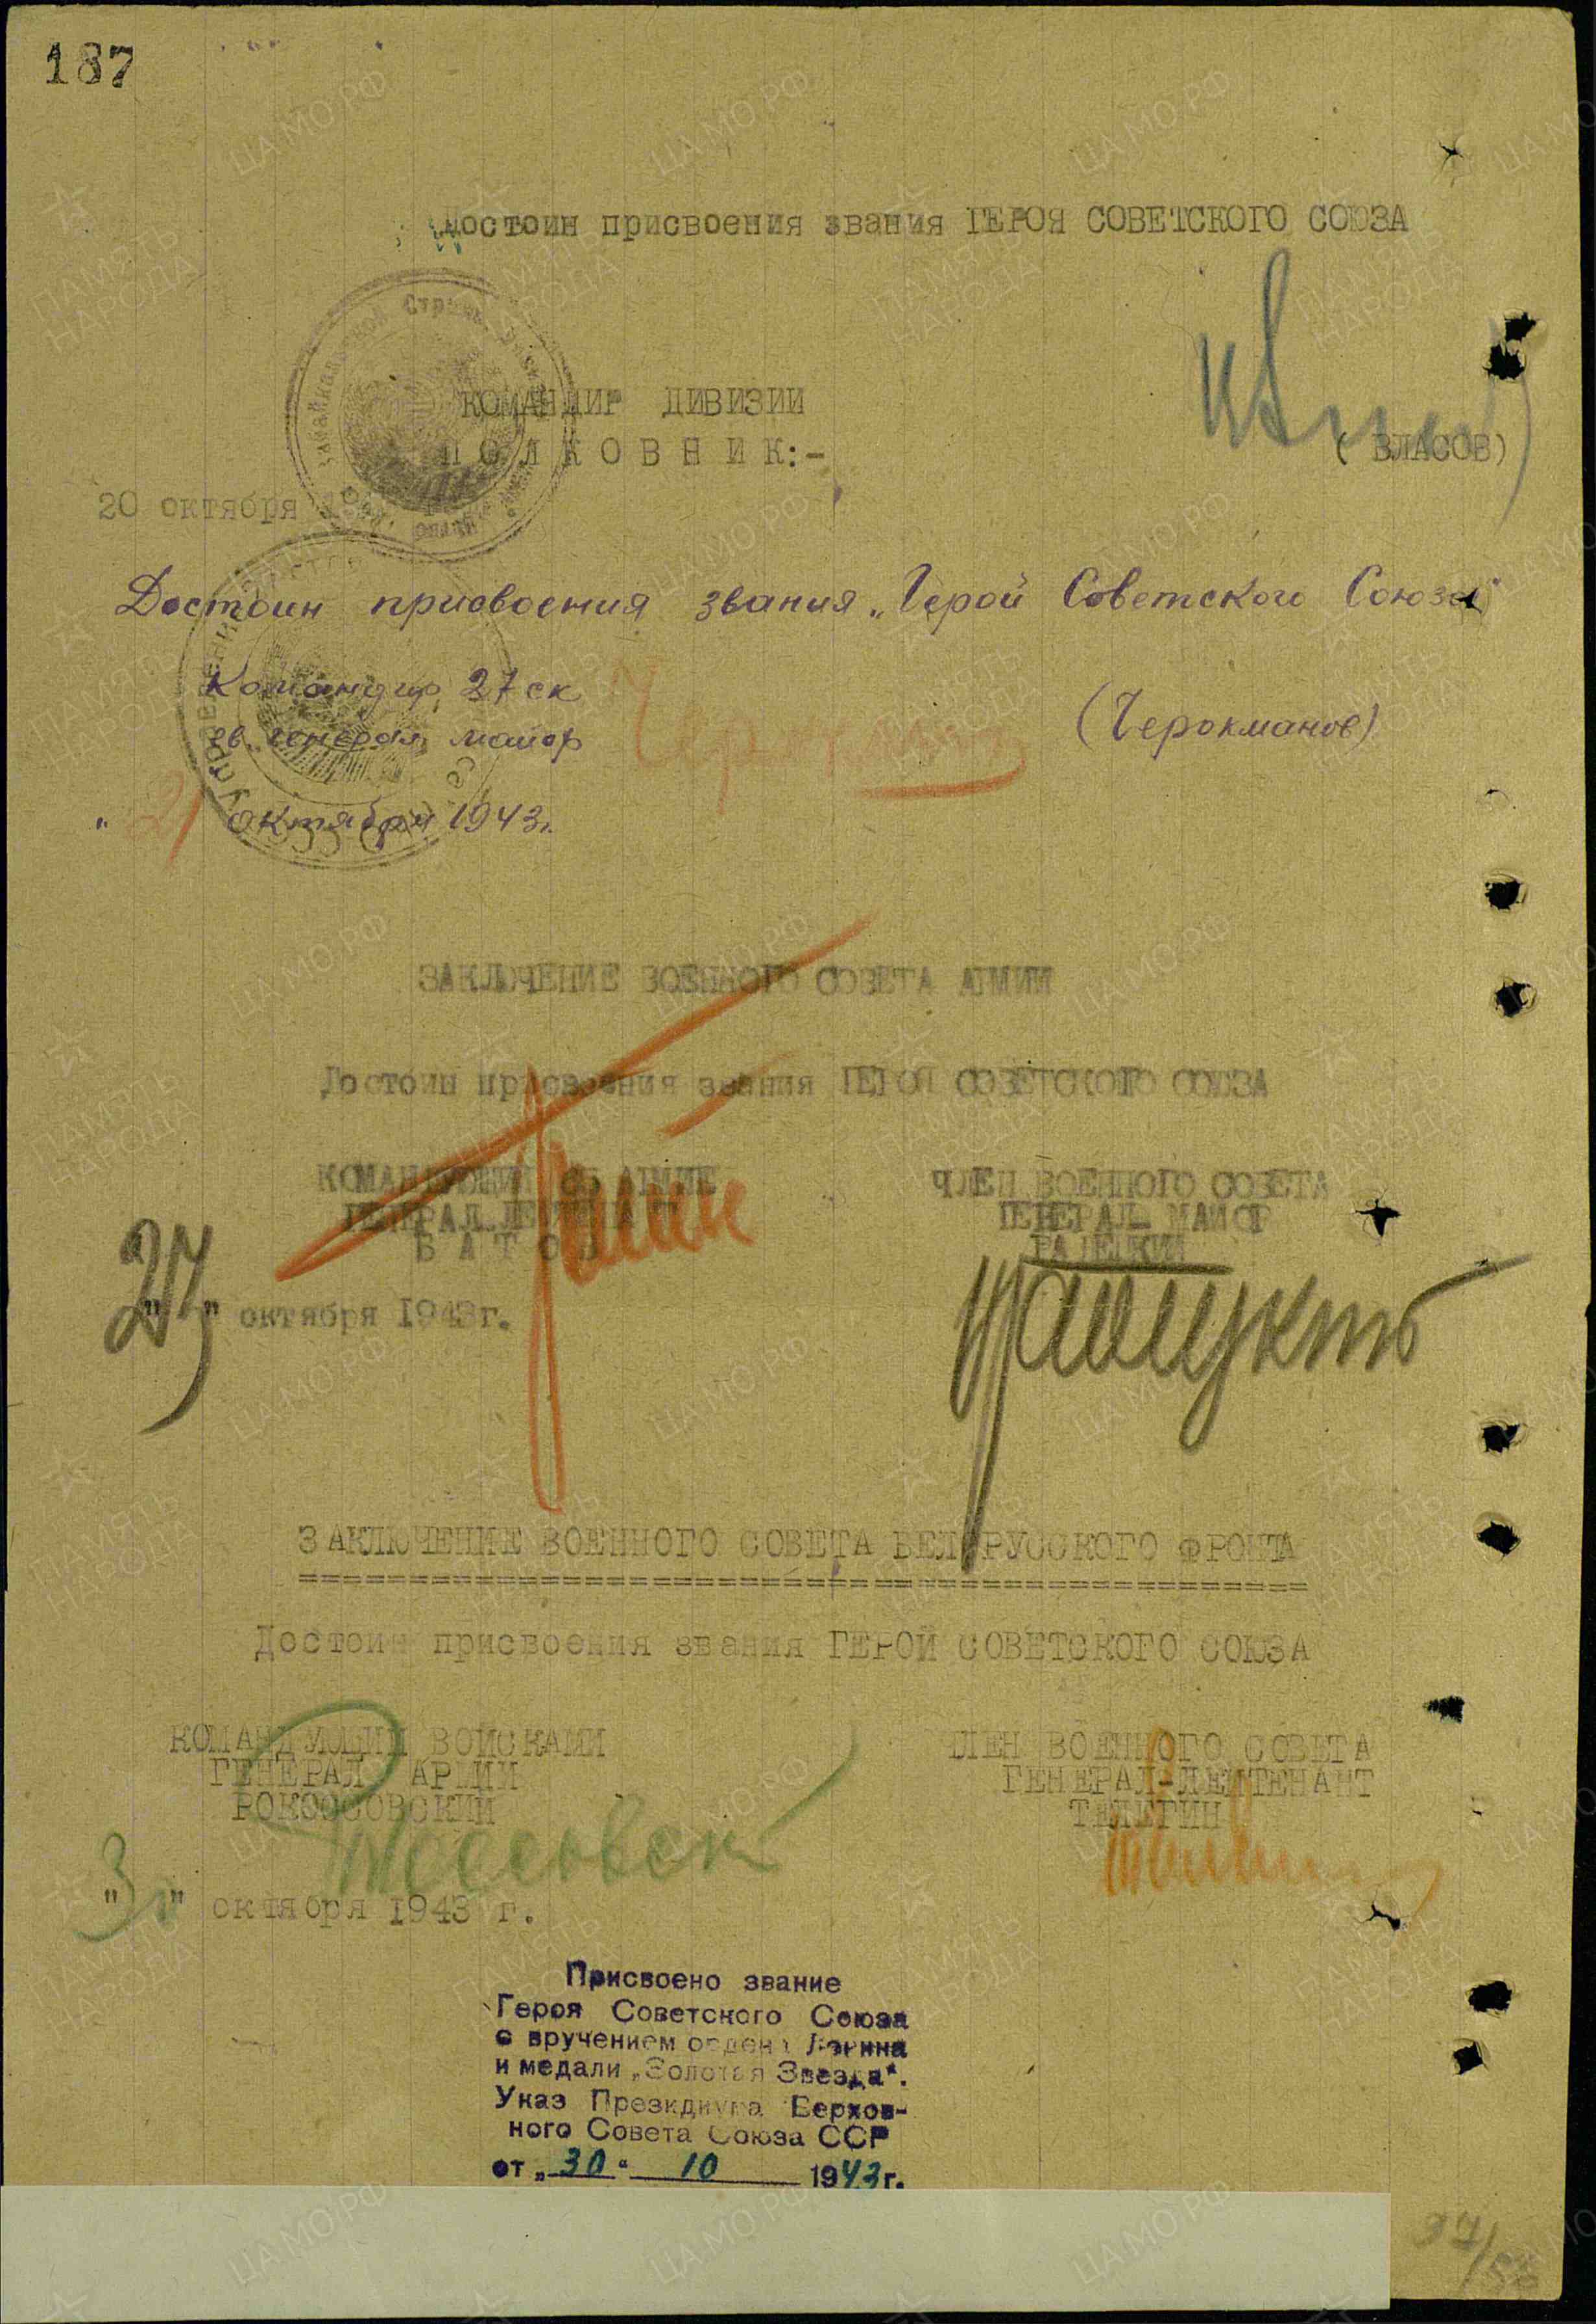 187
Достоин присвоения звания ГЕРОЯ СОВЕТСКОГО СОЮЗА
КОМАНДИР ДИВИЗИИ
ПОЛКОВНИК:-
(ВЛАСОВ)
20 октября
Достоин присвоения звания „Герой Советского Союза"
Командир 27 ск
гв. генерал майор
(Черокманов)
" 21 октября 1943г.
ЗАКЛЮЧЕНИЕ ВОЕННОГО СОВЕТА АРМИИ
Достоин присвоения звания ГЕРОЯ СОВЕТСКОГО СОЮЗА
КОМАНДУЮЩИЙ 65 АРМИЕЙ
ЧЛЕН ВОЕННОГО СОВЕТА
ГЕНЕРАЛ ЛЕЙТЕНАНТ
ГЕНЕРАЛ-МАЙОР
БАТОВ
РАДЕЦКИЙ
"27" октября 1943г.
ЗАКЛЮЧЕНИЕ ВОЕННОГО СОВЕТА БЕЛОРУССКОГО ФРОНТА
Достоин присвоения звания ГЕРОЙ СОВЕТСКОГО СОЮЗА
КОМАНДУЮЩИЙ ВОЙСКАМИ
ЧЛЕН ВОЕННОГО СОВЕТА
ГЕНЕРАЛ АРМИИ
ГЕНЕРАЛ-ЛЕЙТЕНАНТ
РОКОССОВСКИЙ
ТЕЛЕГИН
октября 1943 г.
Присвоено звание
Героя Советского Союза
с вручением ордена Ленина
и медали „Золотая Звезда".
Указ Президиума Верхов-
ного Совета Союза ССР
от „30" 10 1943г.
ЦАМО.РФ
ПАМЯТЬ НАРОДА